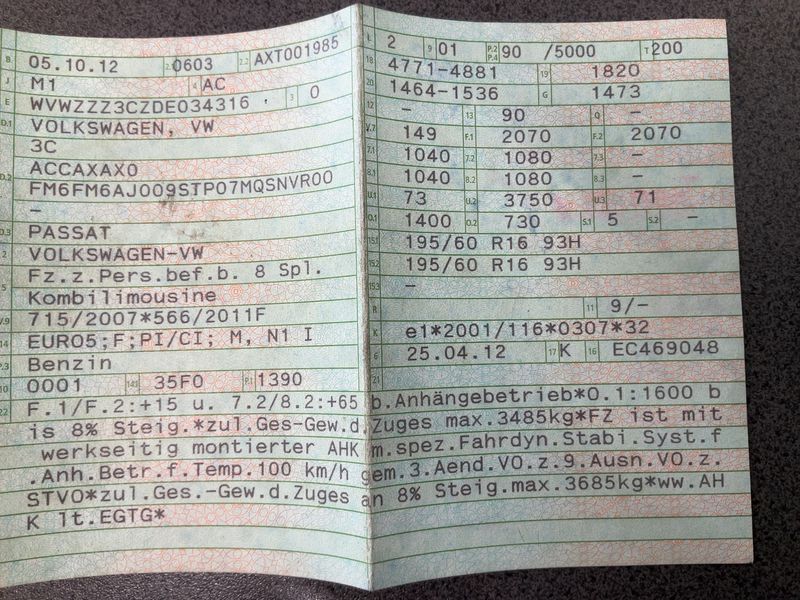 B 05.10.12 2.1 0603 2.2 AXT001985
J M1 4 AC
E WVWZZZ3CZDE034316 3 0
D.1 VOLKSWAGEN, VW
3C
D.2 ACCAXAX0
FM6FM6AJ009STP07MQSNVR00
–
D.3 PASSAT
2 VOLKSWAGEN-VW
5 Fz.z.Pers.bef.b. 8 Spl.
Kombilimousine
V.9 715/2007*566/2011F
14 EURO5;F;PI/CI; M, N1 I
P.3 Benzin
10 0001 14.1 35F0 P.1 1390
L 2 9 01 P.2 P.4 90 /5000 T 200
18 4771-4881 19 1820
20 1464-1536 G 1473
12 – 13 90 Q –
V.7 149 F.1 2070 F.2 2070
7.1 1040 7.2 1080 7.3 –
8.1 1040 8.2 1080 8.3 –
U.1 73 U.2 3750 U.3 71
O.1 1400 O.2 730 S.1 5 S.2 –
15.1 195/60 R16 93H
15.2 195/60 R16 93H
15.3 –
R 11 9/–
K e1*2001/116*0307*32
6 25.04.12 17 K 16 EC469048
21
22 F.1/F.2:+15 u. 7.2/8.2:+65 b.Anhängebetrieb*O.1:1600 b
is 8% Steig.*zul.Ges-Gew.d.Zuges max.3485kg*FZ ist mit
werkseitig montierter AHK m.spez.Fahrdyn.Stabi.Syst.f
.Anh.Betr.f.Temp.100 km/h gem.3.Aend.VO.z.9.Ausn.VO.z.
STVO*zul.Ges.-Gew.d.Zuges an 8% Steig.max.3685kg*ww.AH
K lt.EGTG*